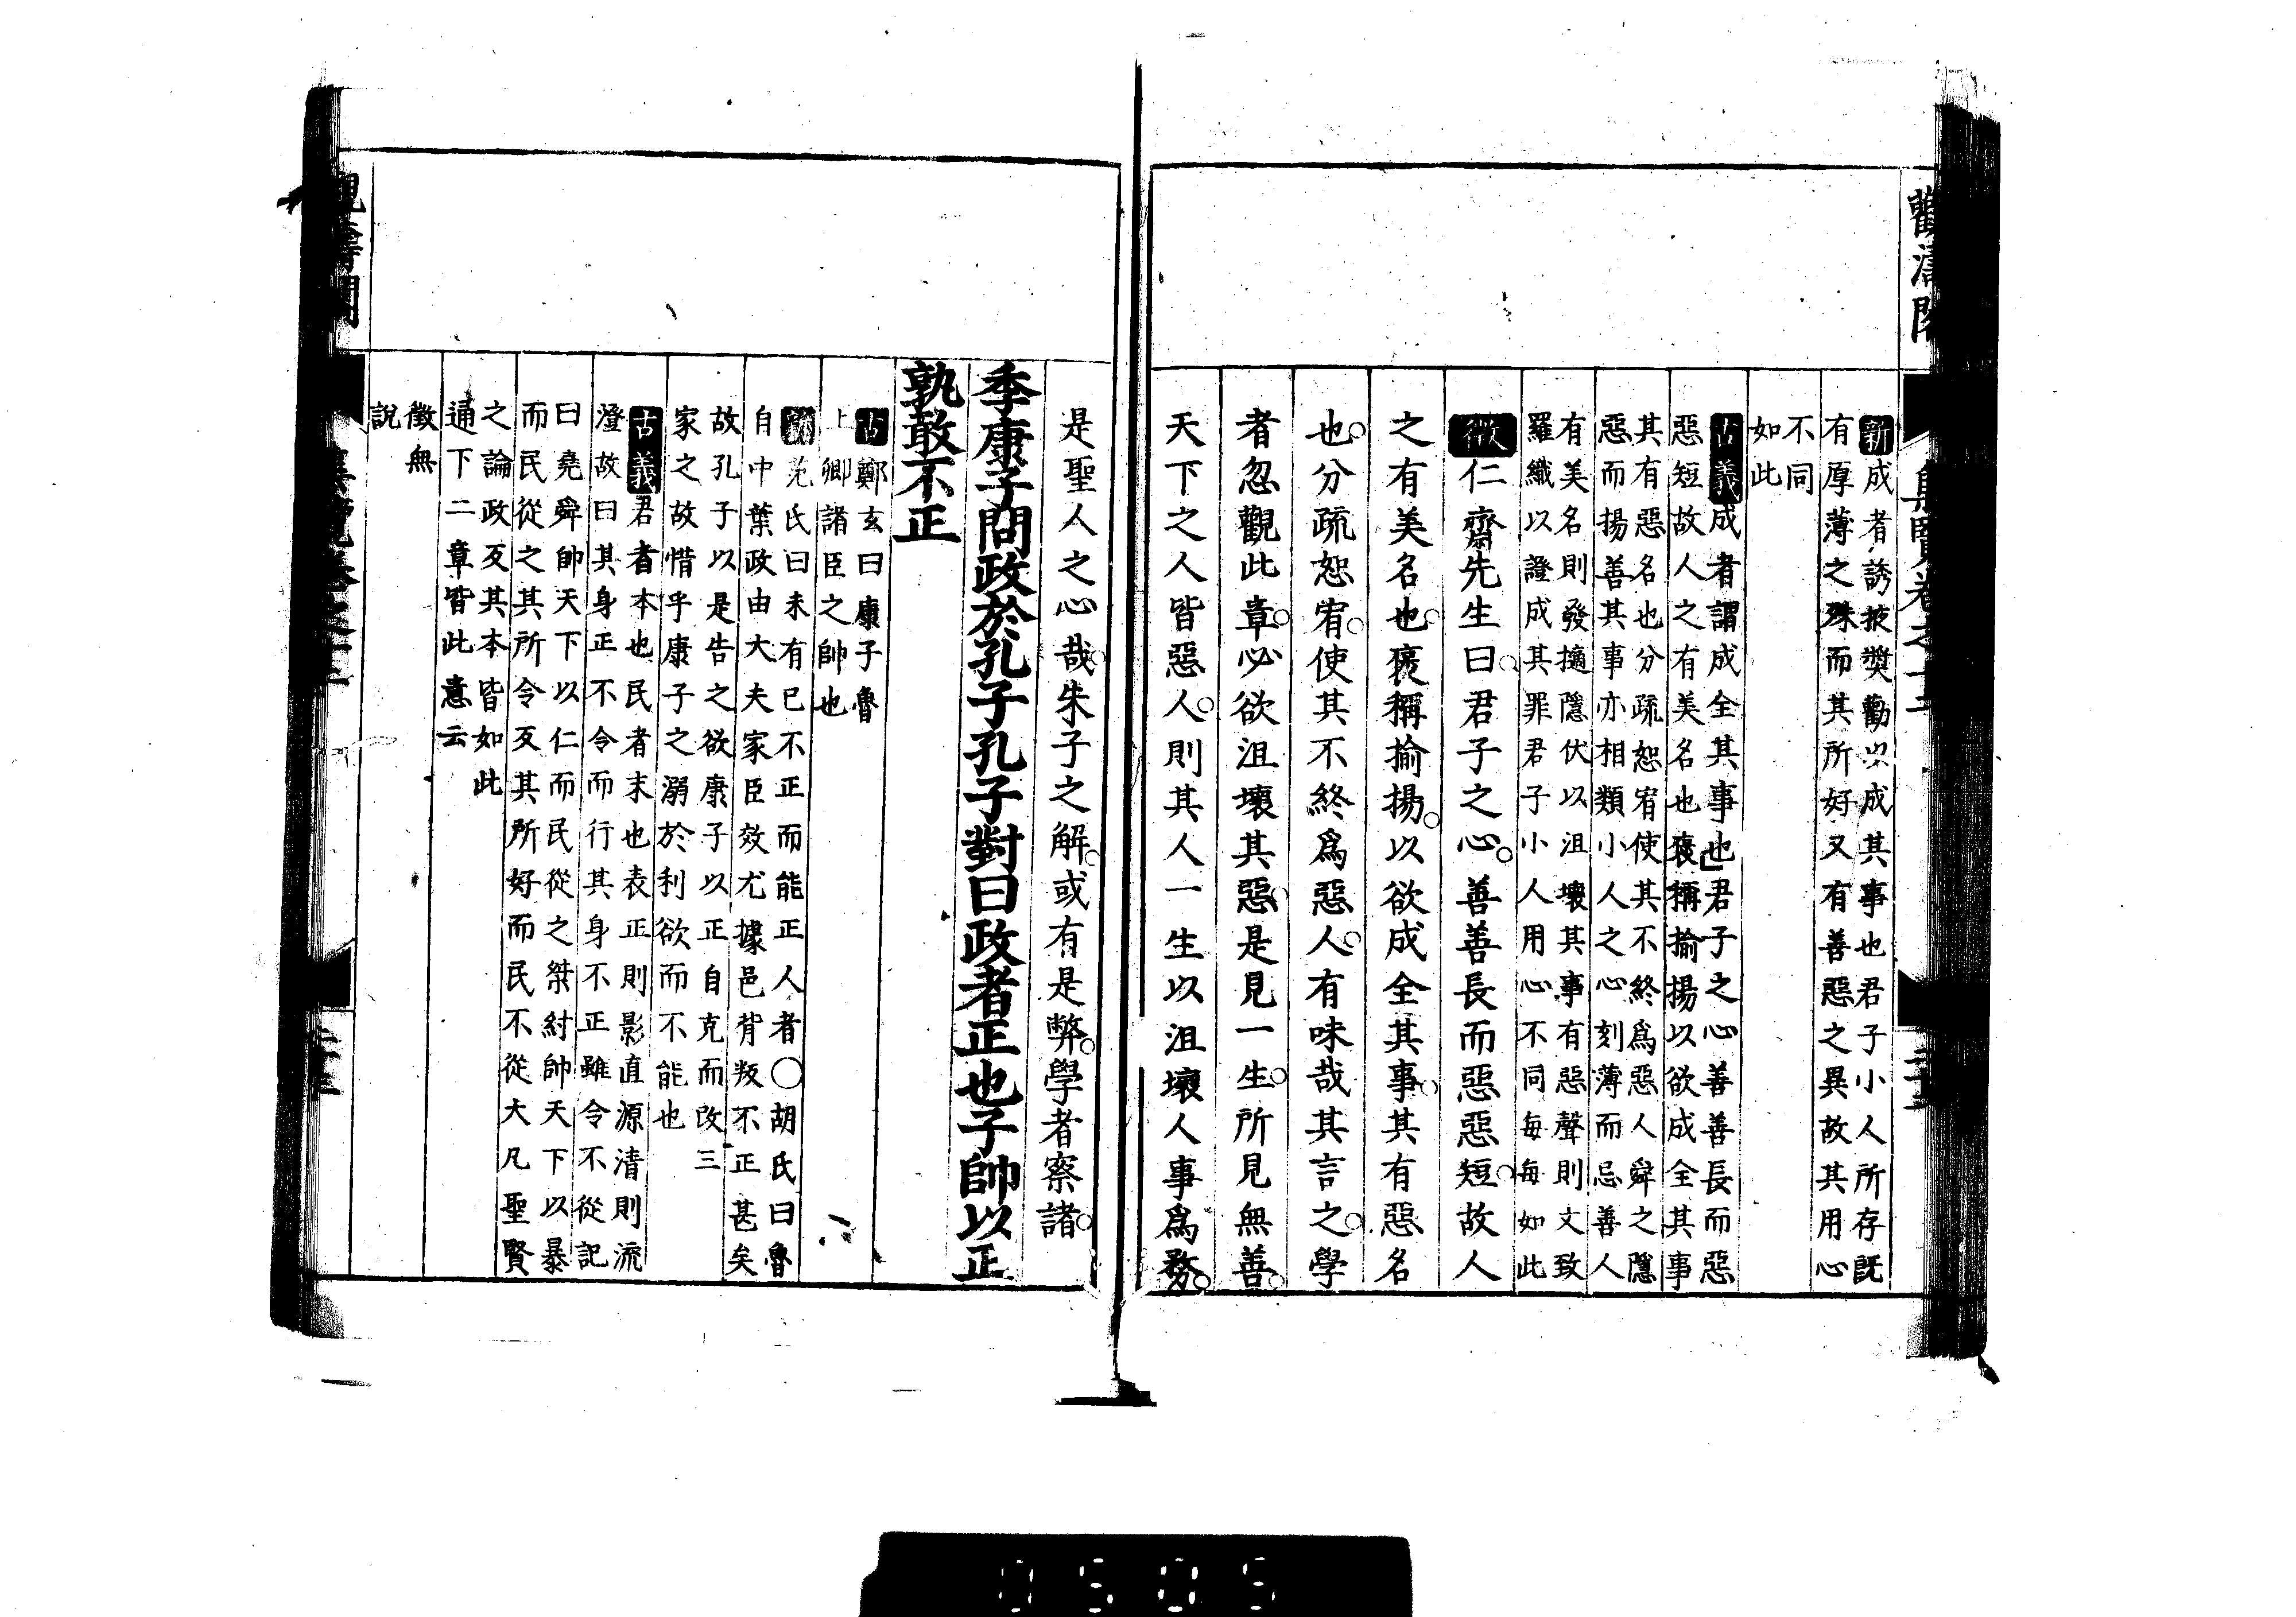 新成者誘掖奬勸以成其事也君子小人所存既
有厚薄之殊而其所好又有善惡之異故其用心
不同
如此
古義成者謂成全其事也君子之心善善長而惡
惡短故人之有美名也褒稱揄揚以欲成全其事
其有惡名也分疏恕宥使其不終爲惡人舜之隱
惡而揚善其事亦相類小人之心刻薄而忌善人
有美名則發擿隱伏以沮壞其事有惡聲則文致
羅織以證成其罪君子小人用心不同每每如此
徴仁齋先生曰君子之心善善長而惡惡短故人
之有美名也褒稱揄揚以欲成全其事其有惡名
也分疏恕宥使其不終爲惡人有味哉其言之學
者忽觀此章必欲沮壞其惡是見一生所見無善
天下之人皆惡人則其人一生以沮壞人事爲務
是聖人之心哉朱子之解或有是弊學者察諸
季康子問政於孔子孔子對曰政者正也子帥以正
孰敢不正
古鄭玄曰康子魯
上卿諸臣之帥也
新范氏曰未有已不正而能正人者○胡氏曰魯
自中葉政由大夫家臣效尤據邑背叛不正甚矣
故孔子以是告之欲康子以正自克而改三
家之故惜乎康子之溺於利欲而不能也
古義君者本也民者末也表正則影直源清則流
澄故曰其身正不令而行其身不正雖令不從記
曰堯舜帥天下以仁而民從之桀紂帥天下以暴
而民從之其所令反其所好而民不從大凡聖賢
之論政反其本皆如此
通下二章皆此意云
徴無
説
觀濤閣
集覽卷之十二